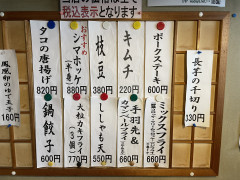 税込表示となります。
ポークステーキ
600円
キムチ
220円
枝豆
380円
おすすめ
シマホッケ
880円
タコの唐揚げ
820円
鳳凰卵のゆで玉子
160円
長芋の千切り
330円
ミックスフライ
660円
手羽先&
660円
ししゃも天
550円
大粒カキフライ
770円
鍋餃子
600円